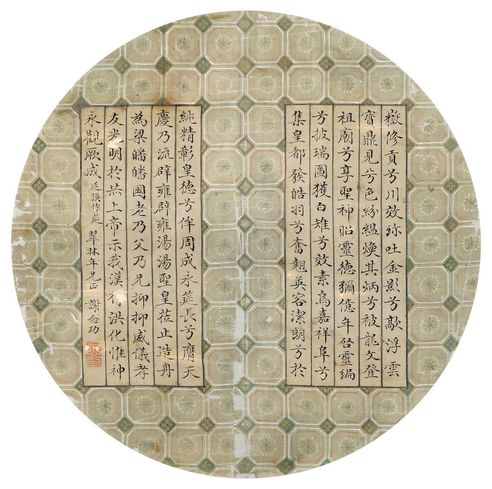 嶽修貢兮川效珎吐金影兮歊浮雲
寶鼎見兮色紛緼煥其炳兮被龍文登
祖廟兮享聖神昭靈德彌億年啓靈編
兮披瑞圖獲白雉兮效素烏嘉祥阜兮
集皇都發皓羽兮奮翹英容潔朗兮於
純精彰皇德兮侔周成永莚長兮膺天
慶乃流辟雍辟雍湯湯聖皇莅止造舟
為梁皤皤國老乃父乃兄抑抑威儀孝
友光明於共上帝示我漢行洪化惟神
永觀厥成 翠林年兄正 謝念功